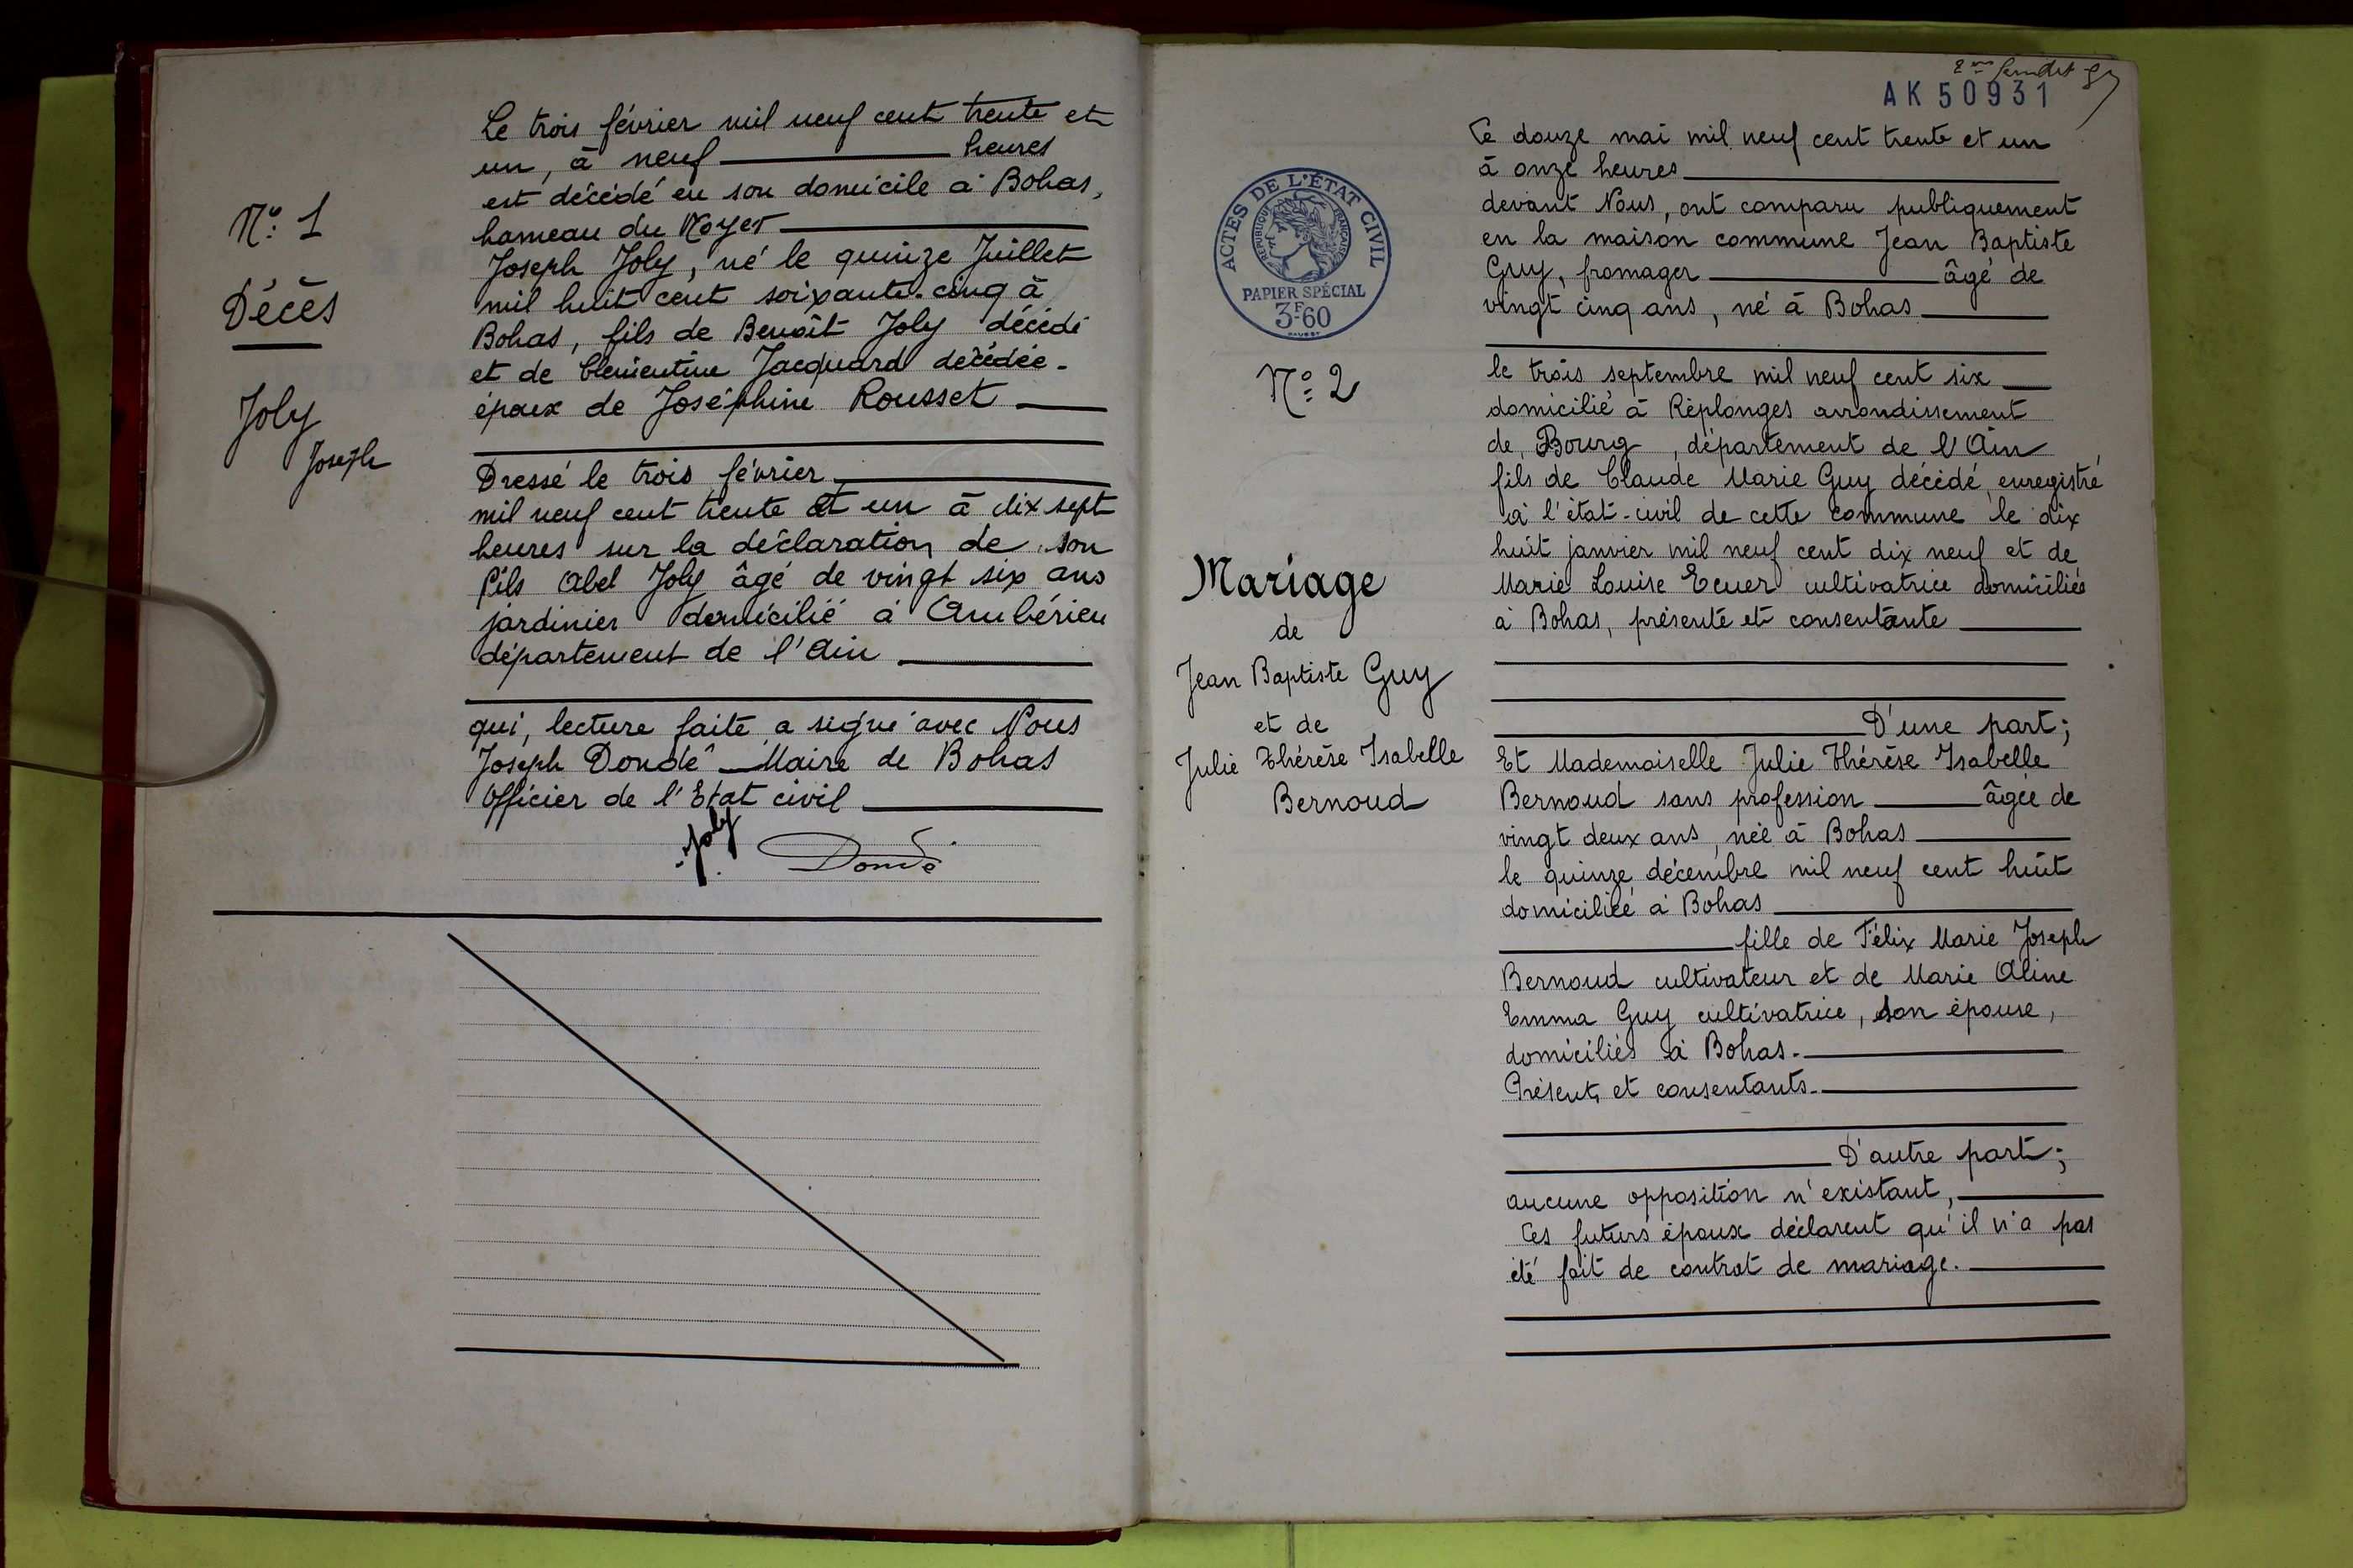 N° 1
Décès
Joly
Joseph
Le trois février mil neuf cent trente et
un, à neuf heures
est décédé en son domicile à Bohas,
hameau du Noyer
Joseph Joly, né le quinze Juillet
mil huit cent soixante-cinq à
Bohas, fils de Benoît Joly décédé
et de Clémentine Jacquard décédée.
époux de Joséphine Rousset
Dressé le trois février
mil neuf cent trente et un à dix sept
heures sur la déclaration de son
fils Abel Joly âgé de vingt six ans
jardinier domicilié à Ambérieu
département de l'Ain
qui, lecture faite a signé avec Nous
Joseph Dondé Maire de Bohas
Officier de l'Etat civil
Joly
Dondé
AK 50931
ACTES DE L'ÉTAT CIVIL
RÉPUBLIQUE FRANÇAISE
PAPIER SPÉCIAL
3F60
N° 2
Mariage
de
Jean Baptiste Guy
et de
Julie Thérèse Isabelle
Bernoud
Le douze mai mil neuf cent trente et un
à onze heures
devant Nous, ont comparu publiquement
en la maison commune Jean Baptiste
Guy, fromager âgé de
vingt cinq ans, né à Bohas
le trois septembre mil neuf cent six
domicilié à Réplonges arrondissement
de Bourg, département de l'Ain
fils de Claude Marie Guy décédé, enregistré
à l'état-civil de cette commune le dix
huit janvier mil neuf cent dix neuf et de
Marie Louise Ecuer cultivatrice domiciliée
à Bohas, présente et consentante
D'une part;
Et Mademoiselle Julie Thérèse Isabelle
Bernoud sans profession âgée de
vingt deux ans, née à Bohas
le quinze décembre mil neuf cent huit
domiciliée à Bohas
fille de Félix Marie Joseph
Bernoud cultivateur et de Marie Aline
Emma Guy cultivatrice, son épouse,
domiciliés à Bohas.
Présents et consentants.
D'autre part;
aucune opposition n'existant,
Les futurs époux déclarent qu'il n'a pas
été fait de contrat de mariage.